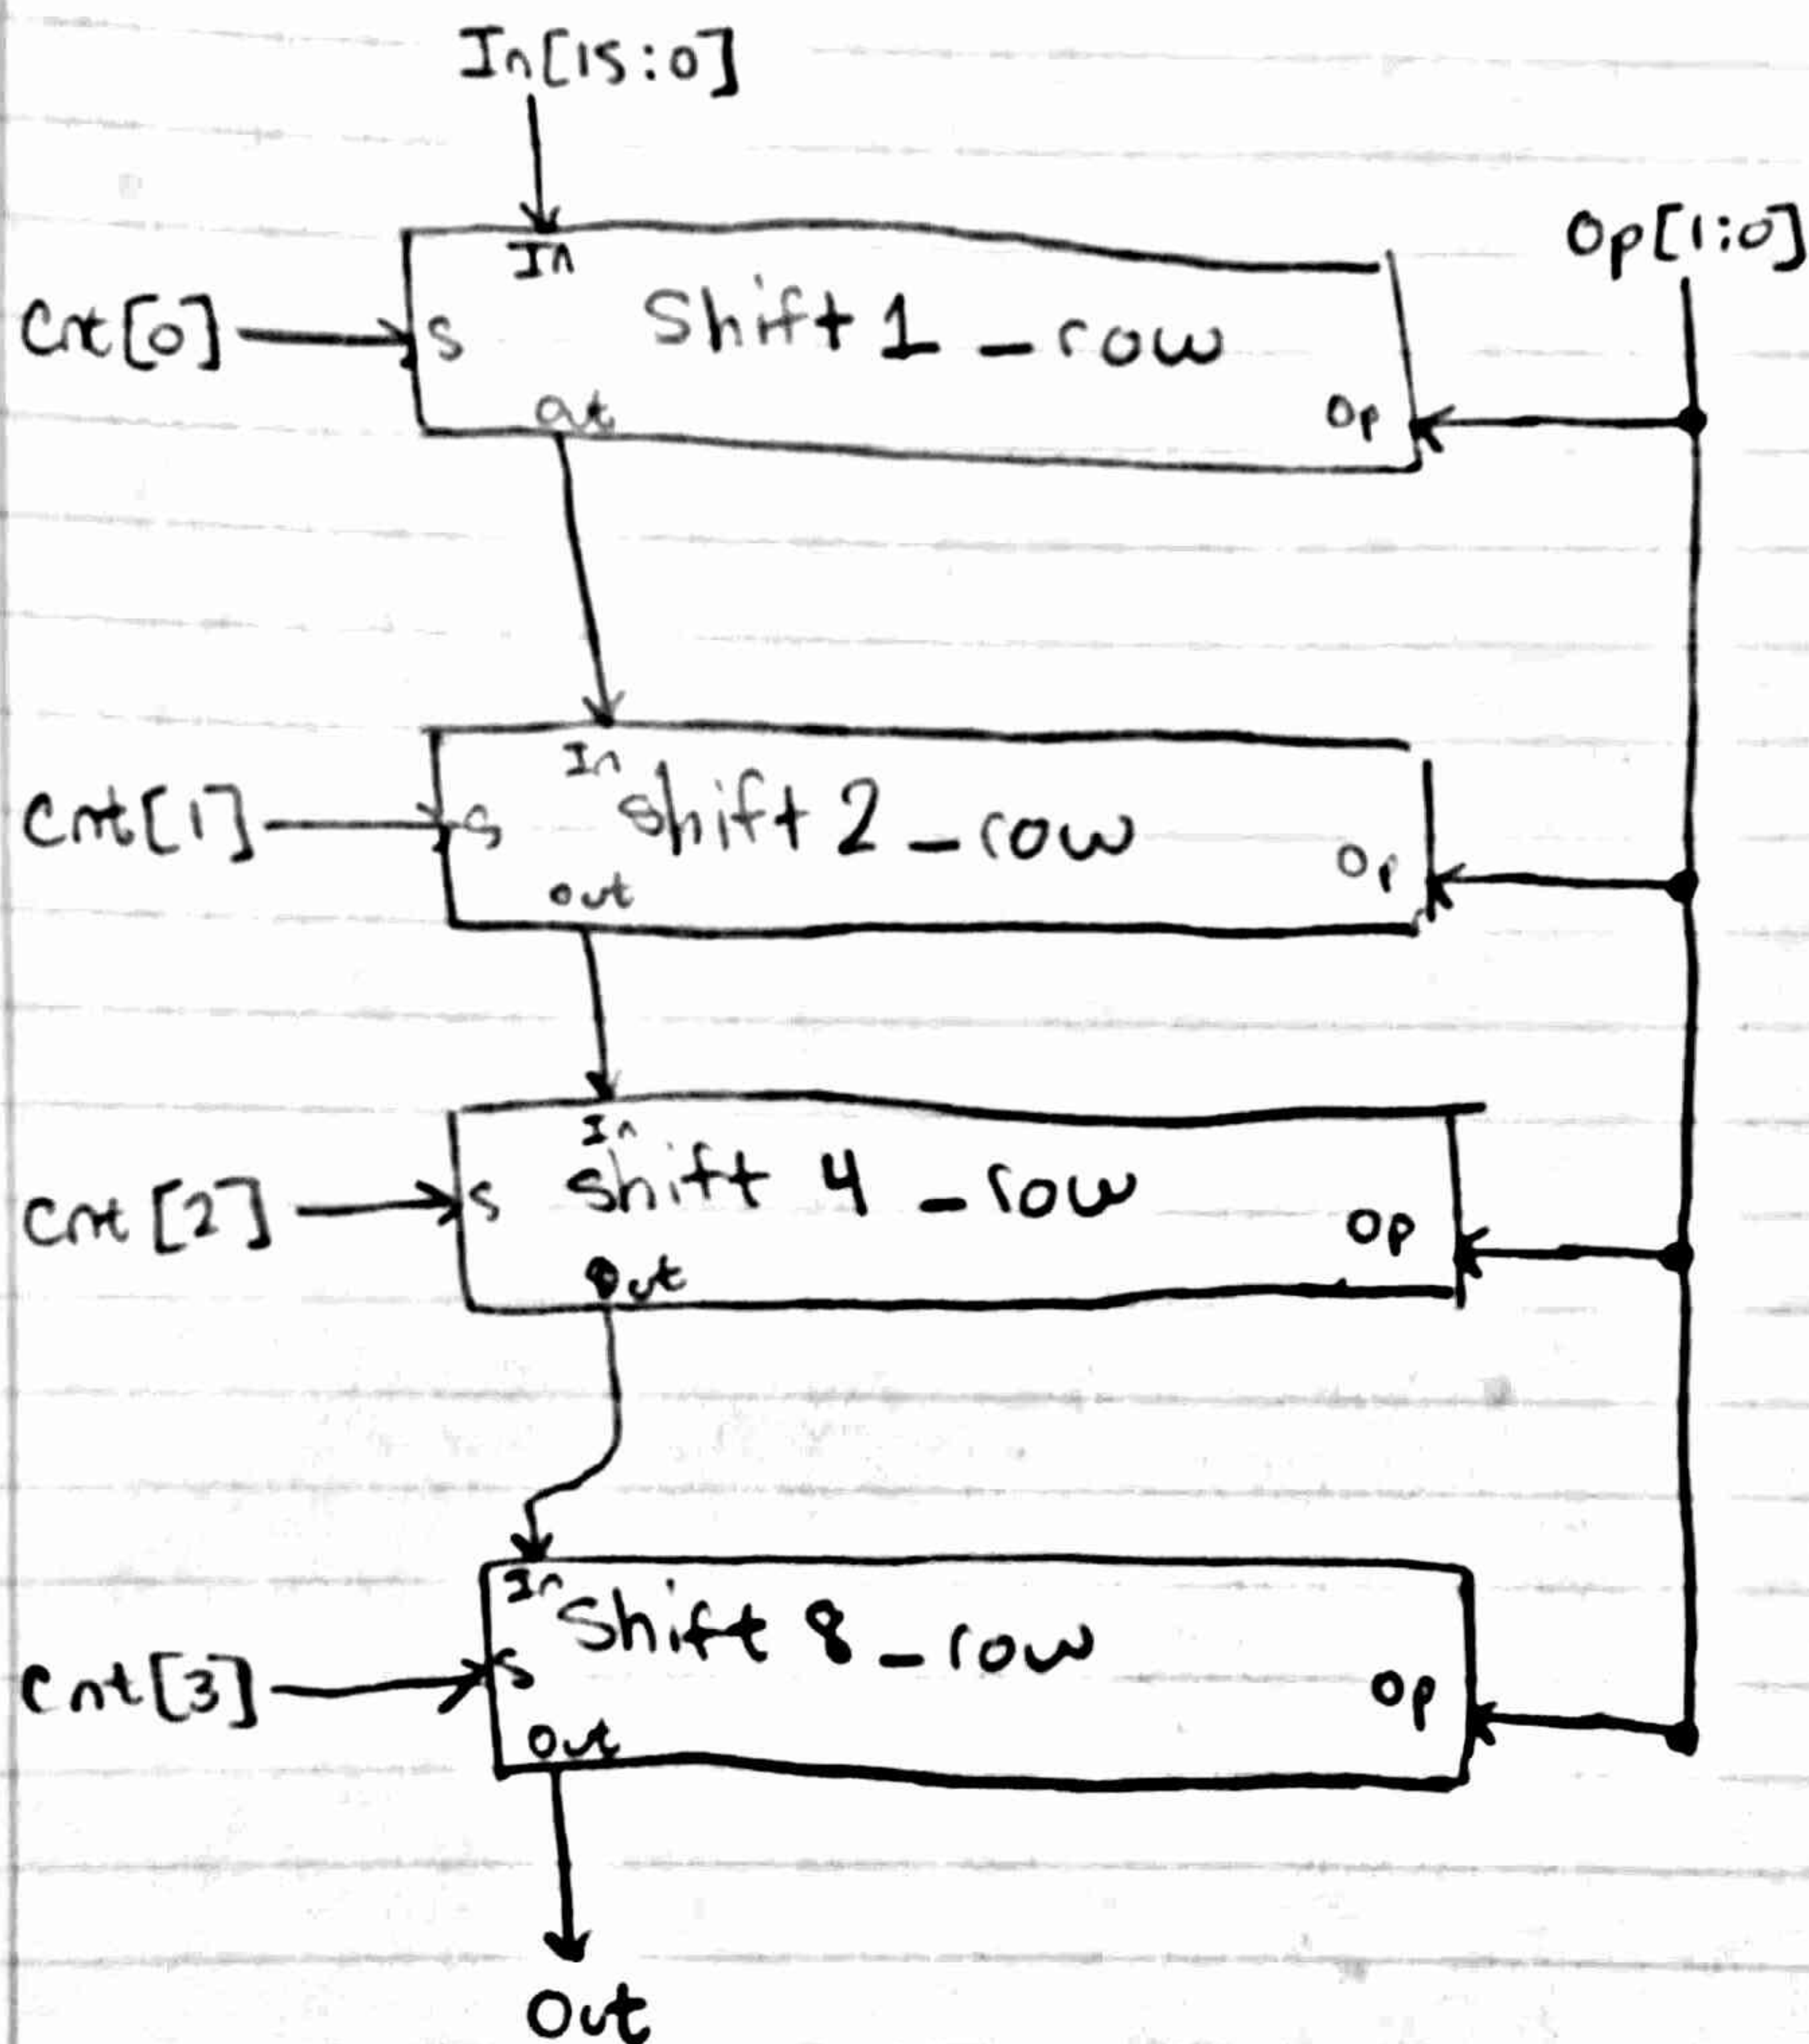 In[15:0]
Op[1:0]
In
Cnt[0]
S
Shift 1_row
Out
Op
In
Cnt[1]
S
Shift 2_row
Out
Op
In
Cnt[2]
S
Shift 4_row
Out
Op
In
Cnt[3]
S
Shift 8_row
Out
Op
Out